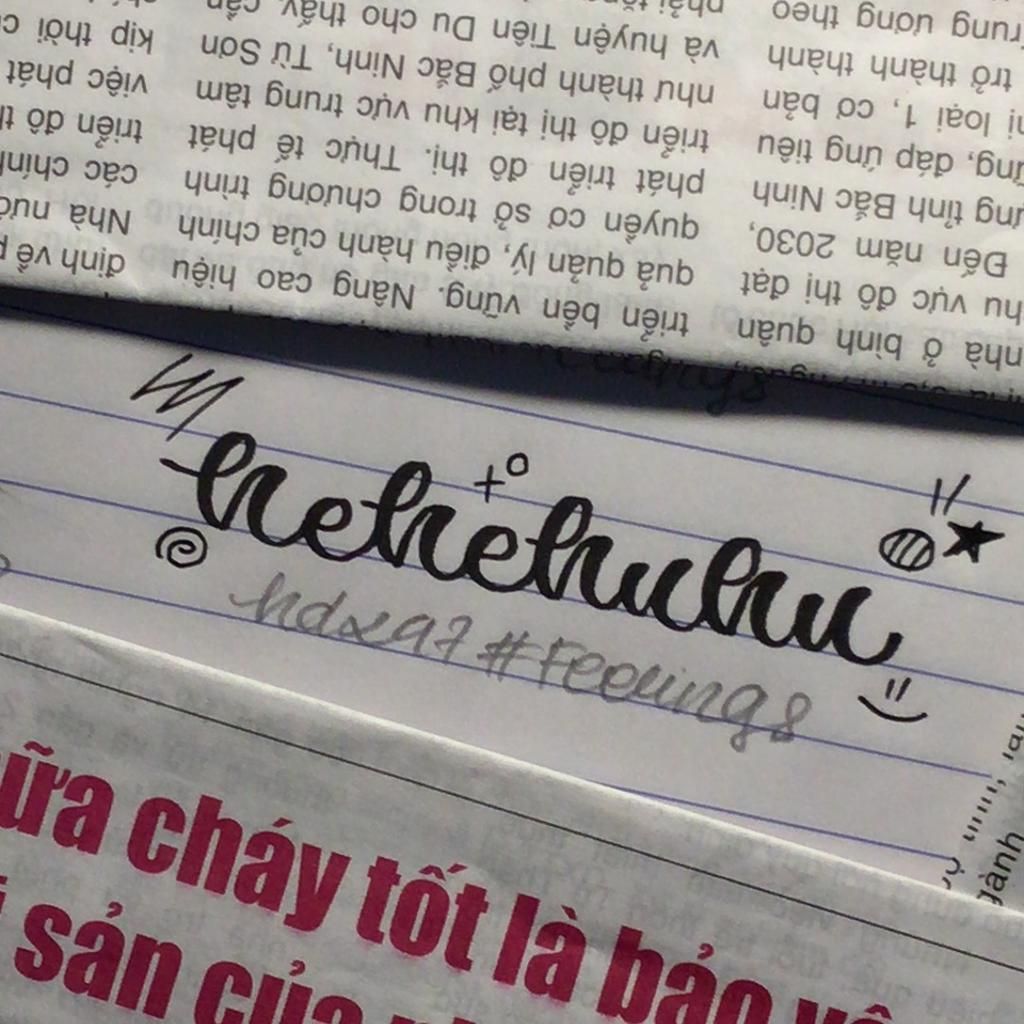 rung ương theo
trở thành thành
ị loại 1, cơ bản
ng, đáp ứng tiêu
ựng tỉnh Bắc Ninh
Đến năm 2030,
hu vực đô thị đạt
nhà ở bình quân
và huyện Tiên Du cho thấy, cần
như thành phố Bắc Ninh, Từ Sơn
triển đô thị tại khu vực trung tâm
phát triển đô thị. Thực tế phát
quyền cơ sở trong chương trình
quả quản lý, điều hành của chính
triển bền vững. Nâng cao hiệu
kịp thời
việc phát
triển đô
các chính
Nhà nướ
định về
hehehuhu
hdx97 #Feelings
ữa cháy tốt là bảo vệ
sản của